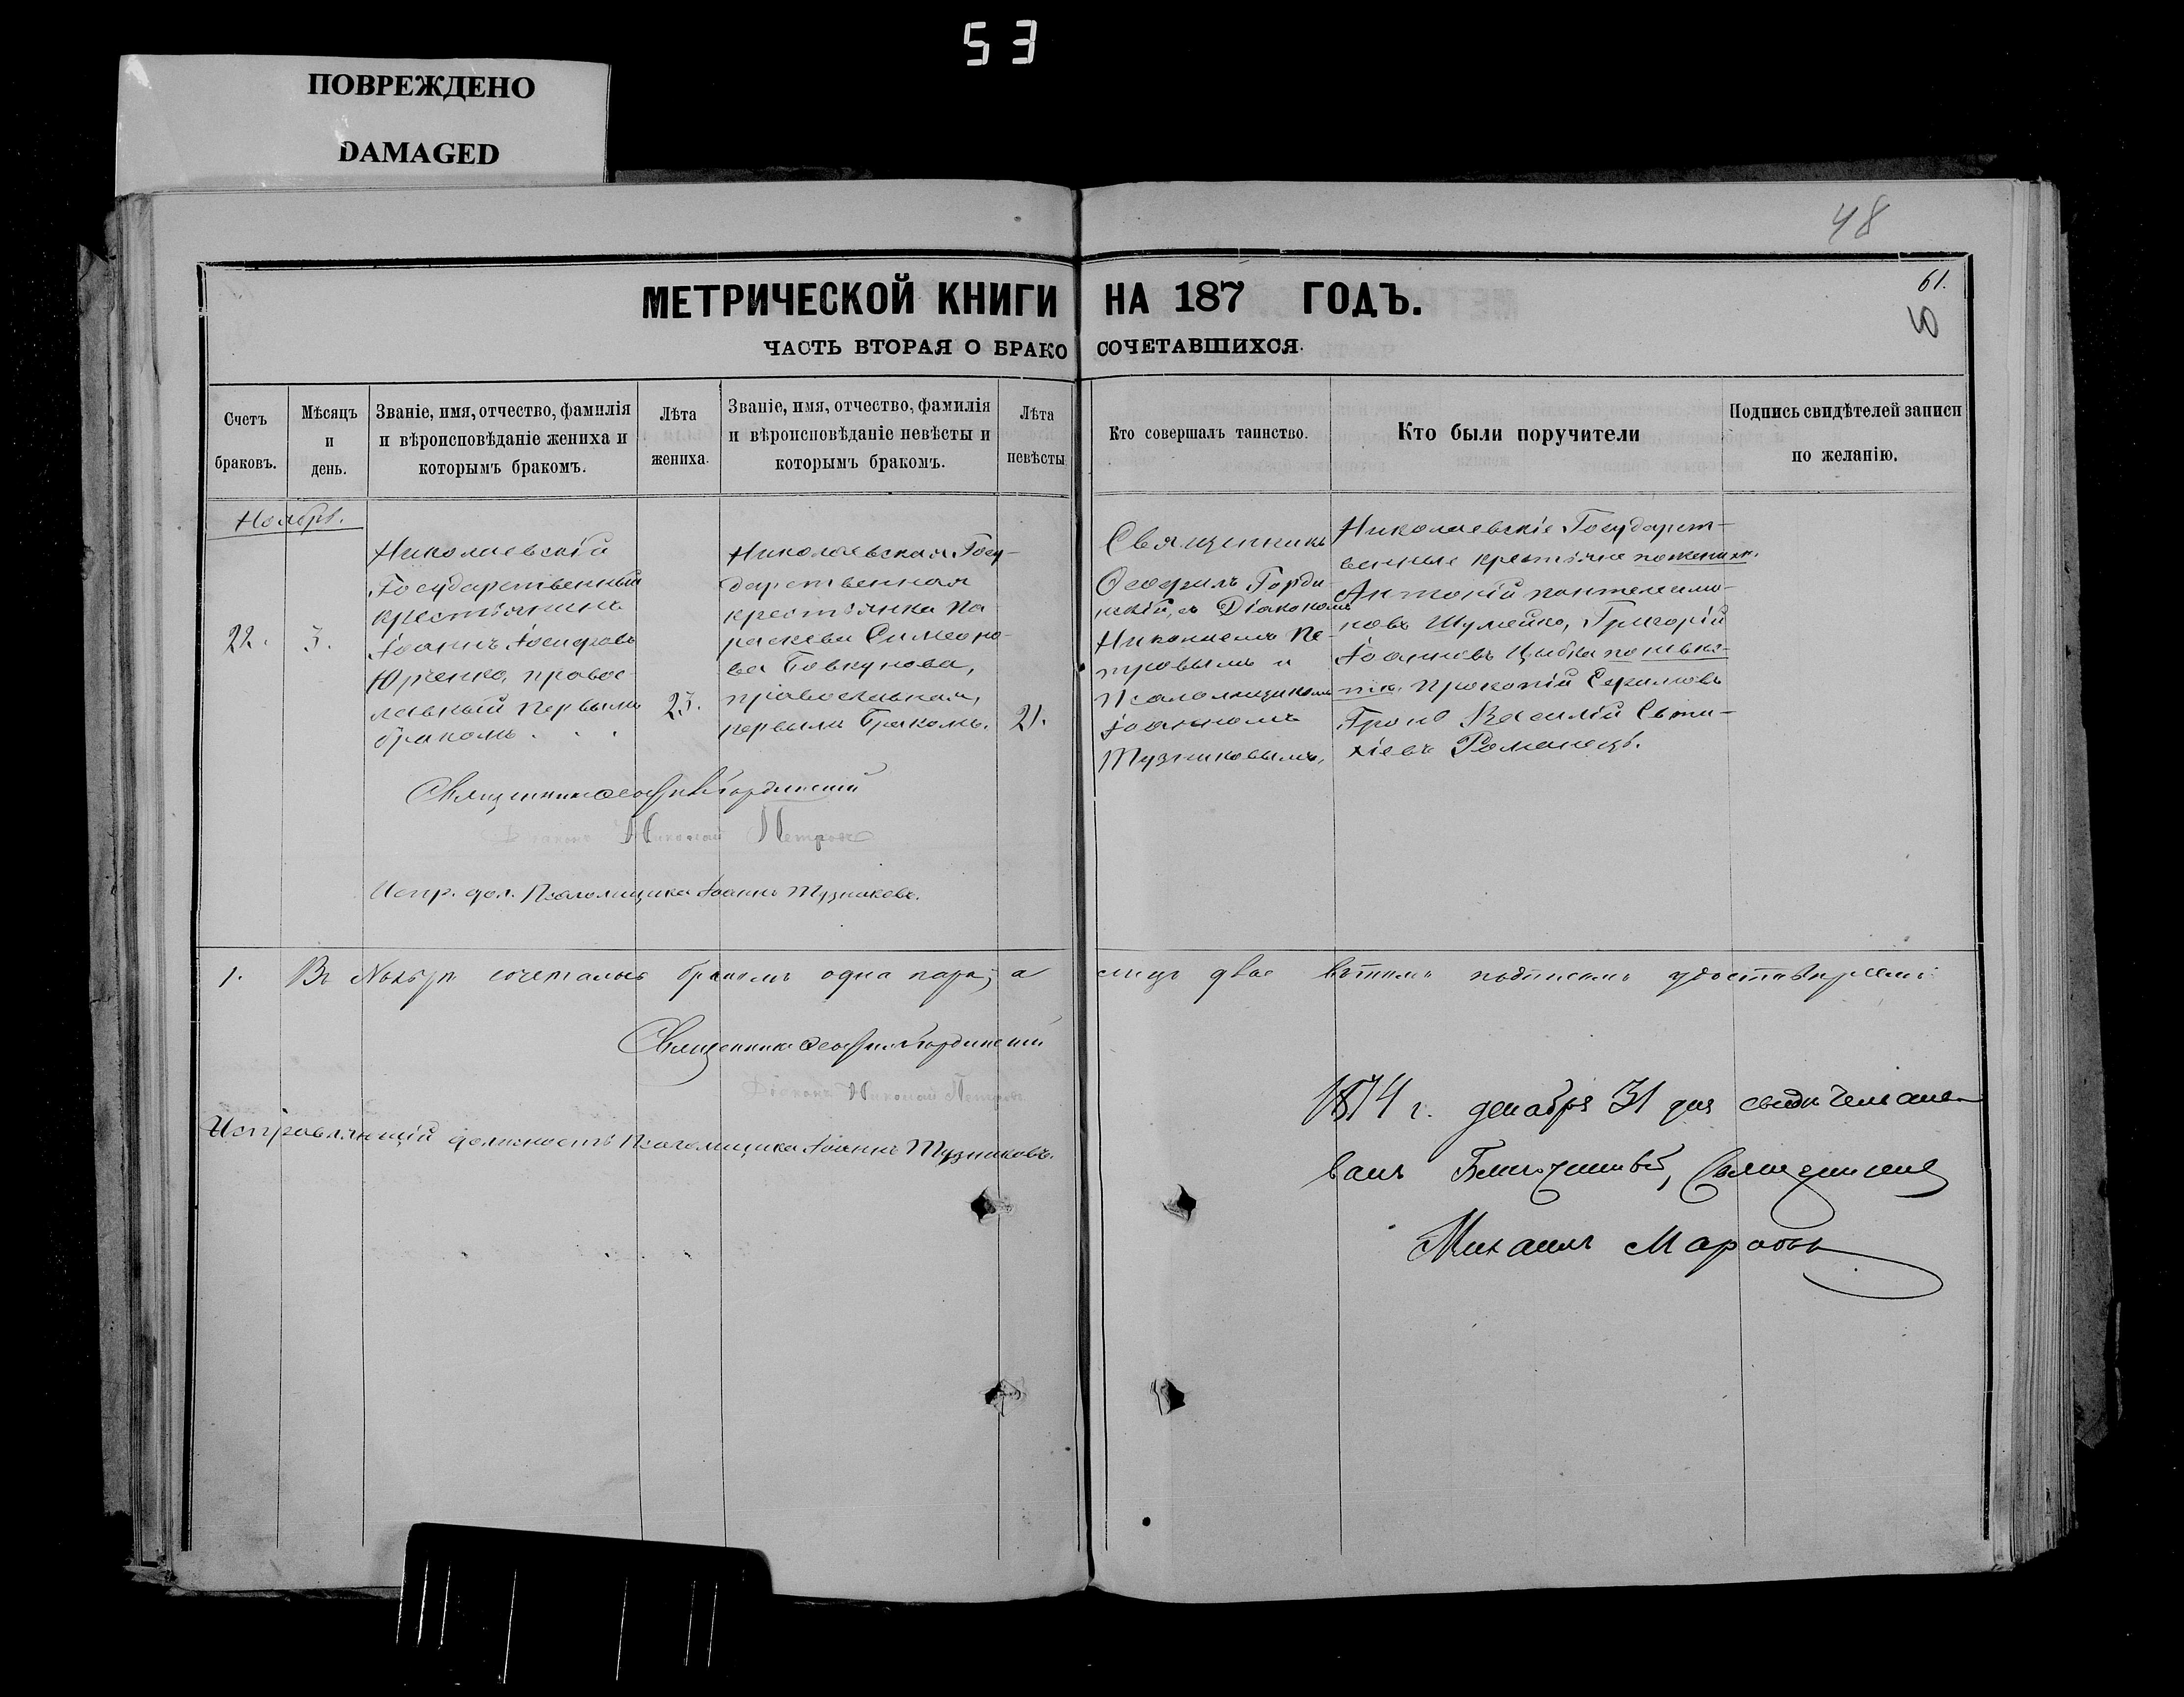 53
ПОВРЕЖДЕНО
DAMAGED
48
61.
МЕТРИЧЕСКОЙ КНИГИ НА 187 ГОДЪ.
ЧАСТЬ ВТОРАЯ О БРАКОСОЧЕТАВШИХСЯ.
Счетъ
браковъ.
Мѣсяцъ
и
день.
Званіе, имя, отчество, фамилія
и вѣроисповѣданіе жениха и
которымъ бракомъ.
Лѣта
жениха.
Званіе, имя, отчество, фамилія
и вѣроисповѣданіе невѣсты и
которымъ бракомъ.
Лѣта
невѣсты
Кто совершалъ таинство.
Кто были поручители
Подпись свидѣтелей записи
по желанію.
Ноябрь.
22.
3.
Николаевскій
Государственный
крестьянинъ
Іоаннъ Іосифовъ
Юрченко, правос-
лавный первымъ
бракомъ . . .
23.
Николаевская Госу-
дарственная
крестьянка Па
раскева Симеоно-
ва Бовкунова,
православная,
первымъ бракомъ.
21.
Священникъ
Ѳеофилъ Горди-
нскій, съ Діакономъ
Николаемъ Пе-
тровымъ и
Псаломщикомъ
Іоанномъ
Тузниковымъ,
Николаевскіе Государст-
венные крестьяне по женихѣ.
Антоній Пантелеимо-
новъ Шумейко, Григорій
Іоанновъ Цыбка по невѣс-
тѣ. Прокопій Ефимовъ
Василій Евти-
хіевъ Романецъ.
Священникъ Ѳеофилъ Гординскій
Діаконъ Николай Петровъ
Испр. дол. Псаломщика Іоаннъ Тузниковъ.
1. Въ Ноябрѣ сочеталась бракомъ одна пара, а лицъ двое въ чемъ подписомъ удостовѣряемъ:
Священникъ Ѳеофилъ Гординскій
Діаконъ Николай Петровъ
Исправляющій должность Псаломщика Іоаннъ Тузниковъ.
1874 г. декабря 31 дня свидѣтельство-
валъ Благочинный, Священникъ
Михаилъ